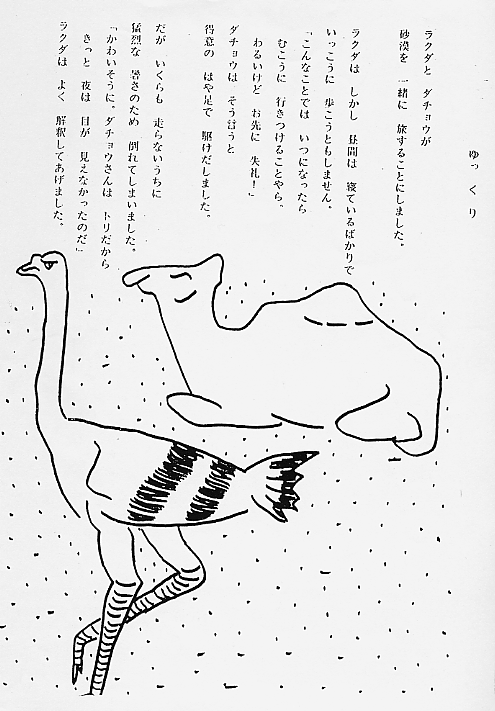 ゆっくり
ラクダと ダチョウが
砂漠を 一緒に 旅することにしました。
ラクダは しかし 昼間は 寝ているばかりで
いっこうに 歩こうともしません。
「こんなことでは いつになったら
むこうに 行きつけることやら。
わるいけど お先に 失礼！」
ダチョウは そう言うと
得意の はや足で 駆けだしました。
だが いくらも 走らないうちに
猛烈な 暑さのため 倒れてしまいました。
「かわいそうに。ダチョウさんは トリだから
きっと 夜は 目が 見えなかったのだ」
ラクダは よく 解釈してあげました。